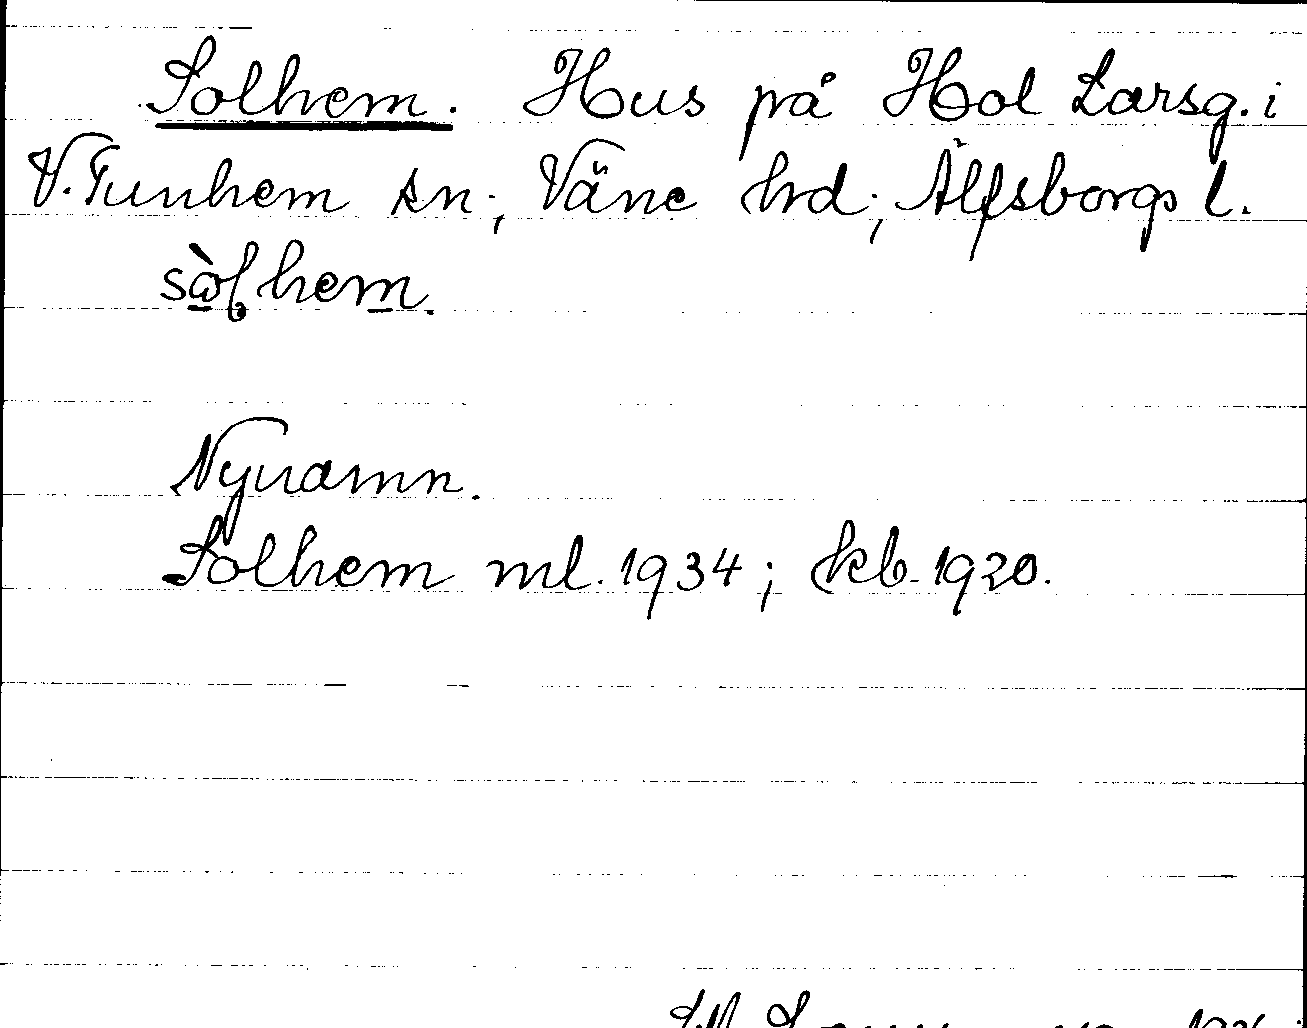 Solhem. Hus på Hol Larsg. i
V. Tunhem sn; Väne hd; Älfsborgs l.
Nynamn.
Solhem ml. 1934; kb. 1920.